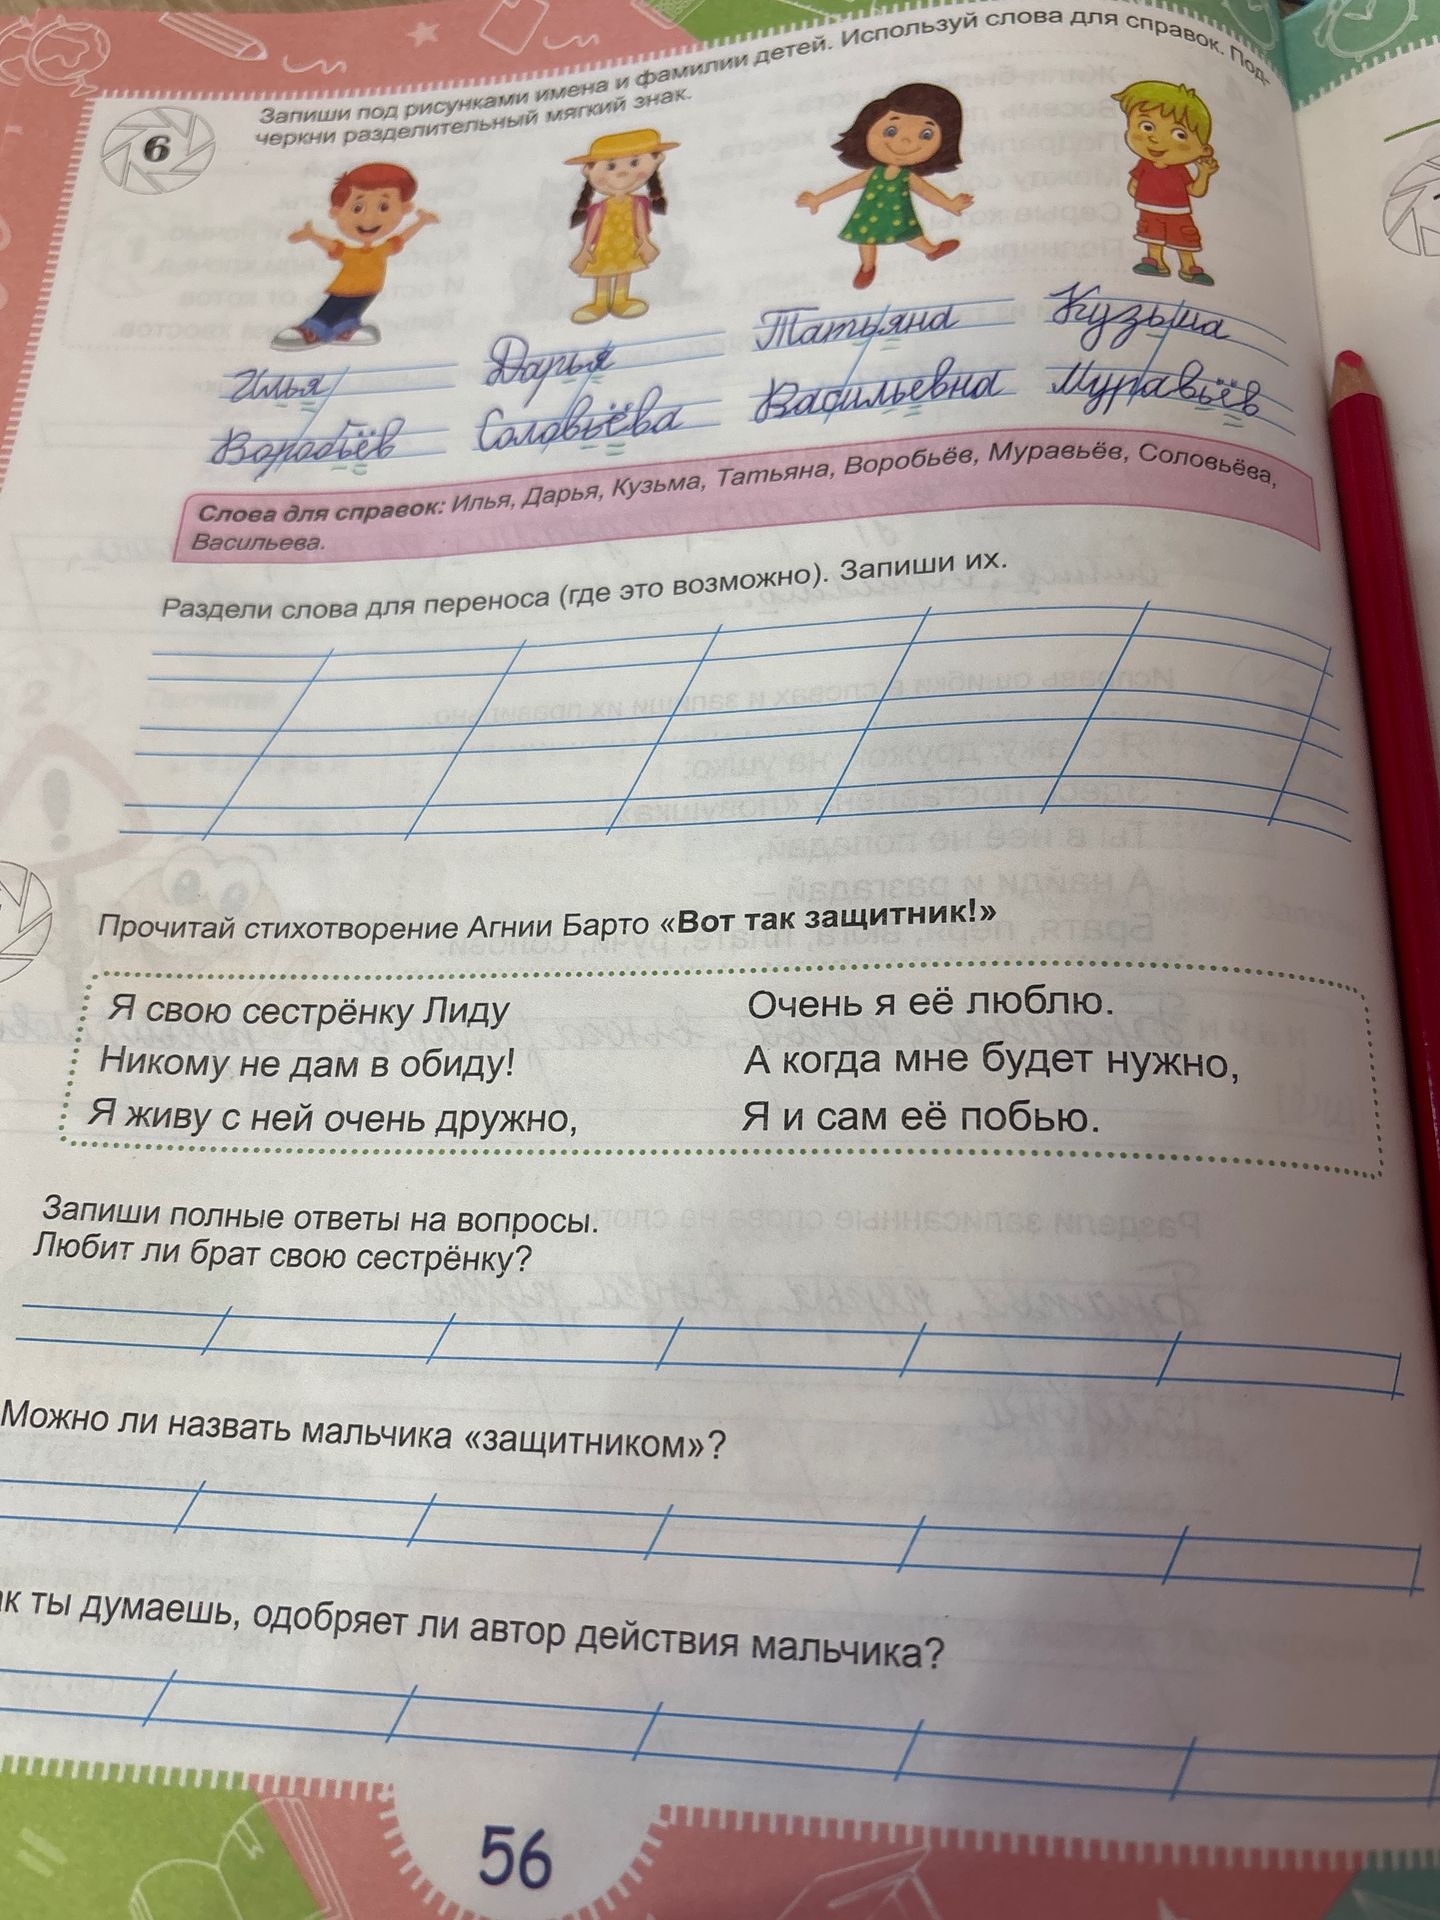 Запиши под рисунками имена и фамилии детей. Используй слова для справок. Под-
черкни разделительный мягкий знак.
6
Илья
Дарья
Татьяна
Кузьма
Воробьёв
Соловьёва
Васильевна
Муравьёв
Слова для справок: Илья, Дарья, Кузьма, Татьяна, Воробьёв, Муравьёв, Соловьёва,
Васильева.
Раздели слова для переноса (где это возможно). Запиши их.
Прочитай стихотворение Агнии Барто «Вот так защитник!»
Я свою сестрёнку Лиду
Никому не дам в обиду!
Я живу с ней очень дружно,
Очень я её люблю.
А когда мне будет нужно,
Я и сам её побью.
Запиши полные ответы на вопросы.
Любит ли брат свою сестрёнку?
Можно ли назвать мальчика «защитником»?
ак ты думаешь, одобряет ли автор действия мальчика?
56